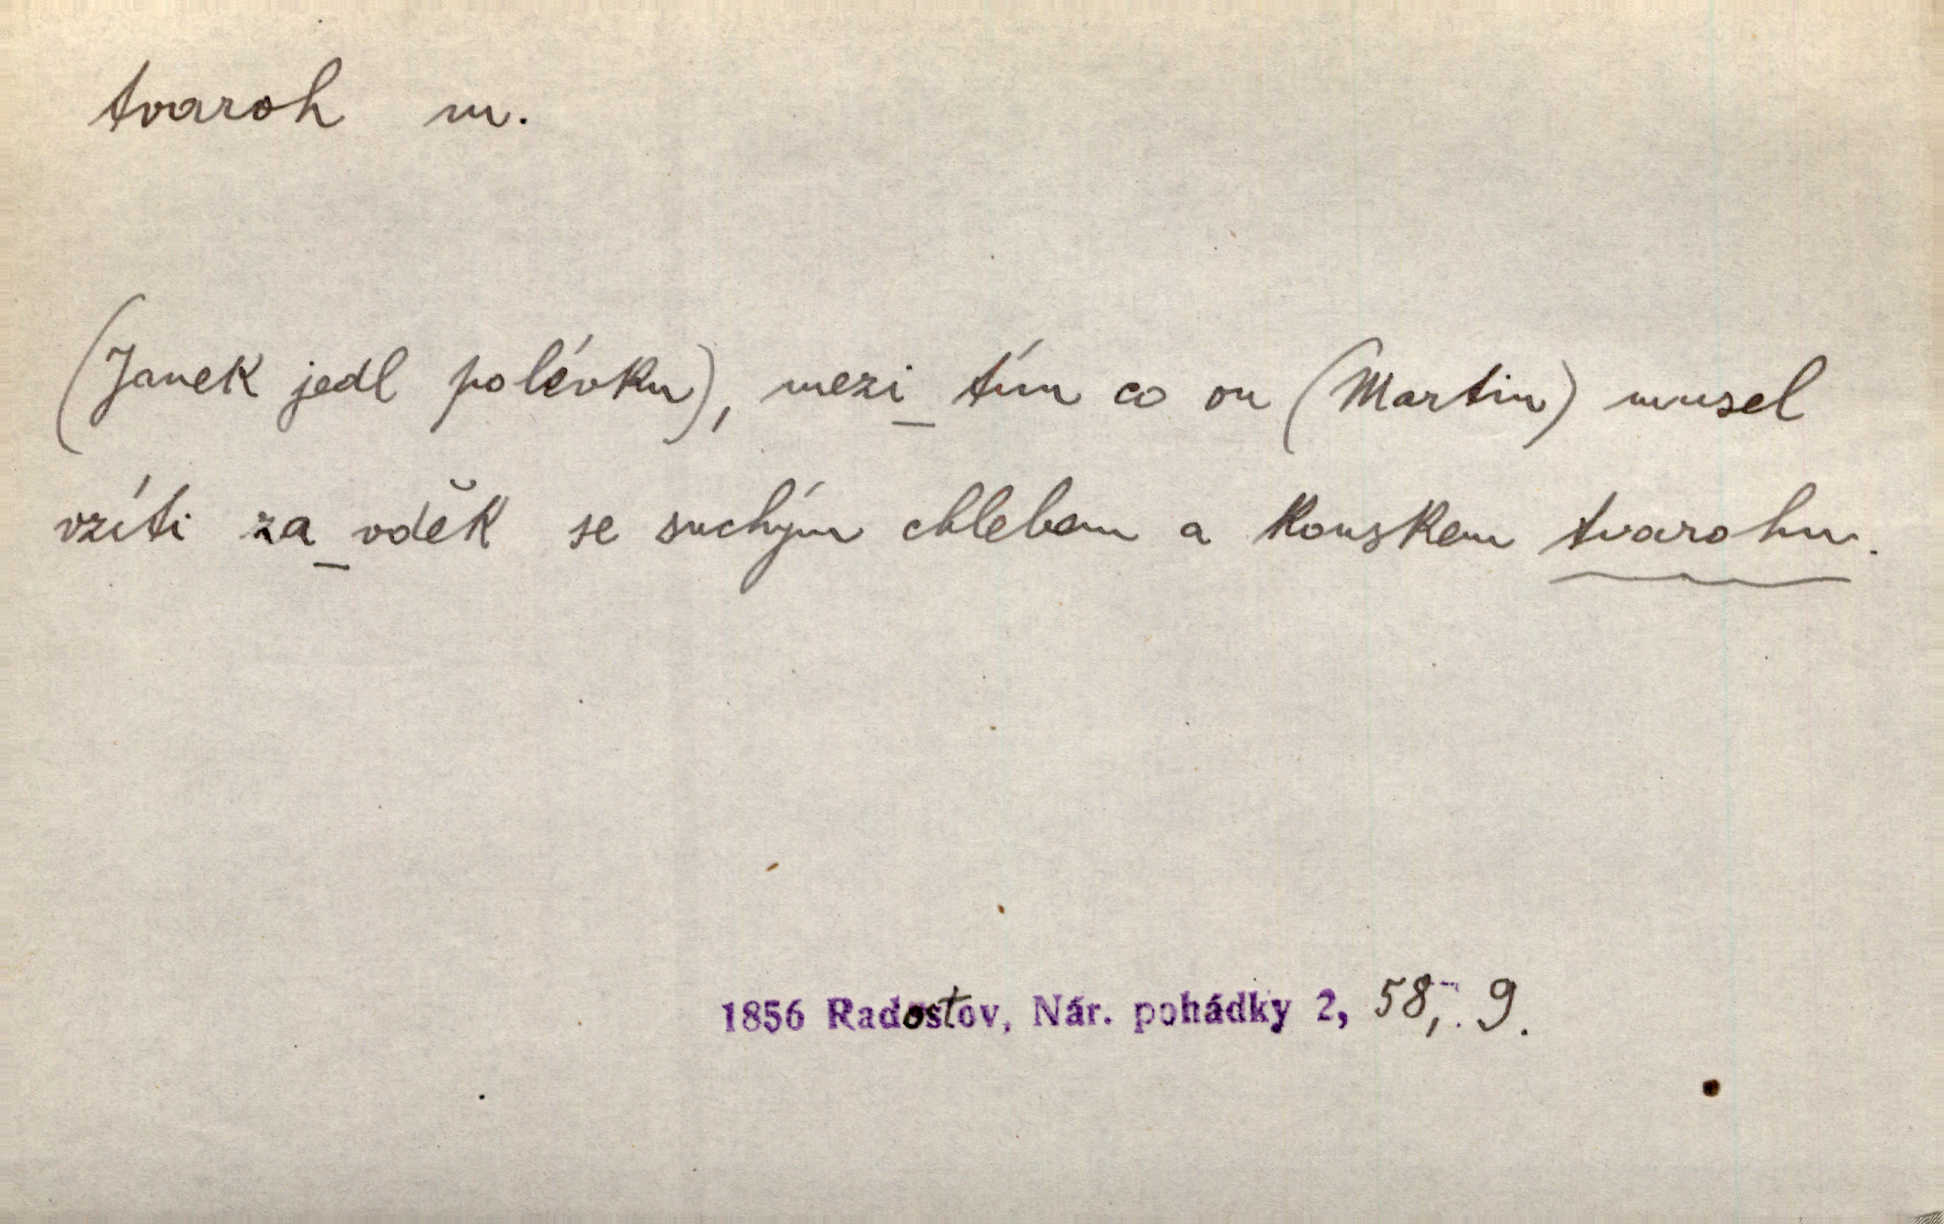 tvaroh m.
(Janek jedl polévku), mezi_tím co on (Martin) musel
vzíti za_vděk se suchým chlebem a kouskem tvarohu.
1856 Radostov, Nár. pohádky 2, 58, 9.